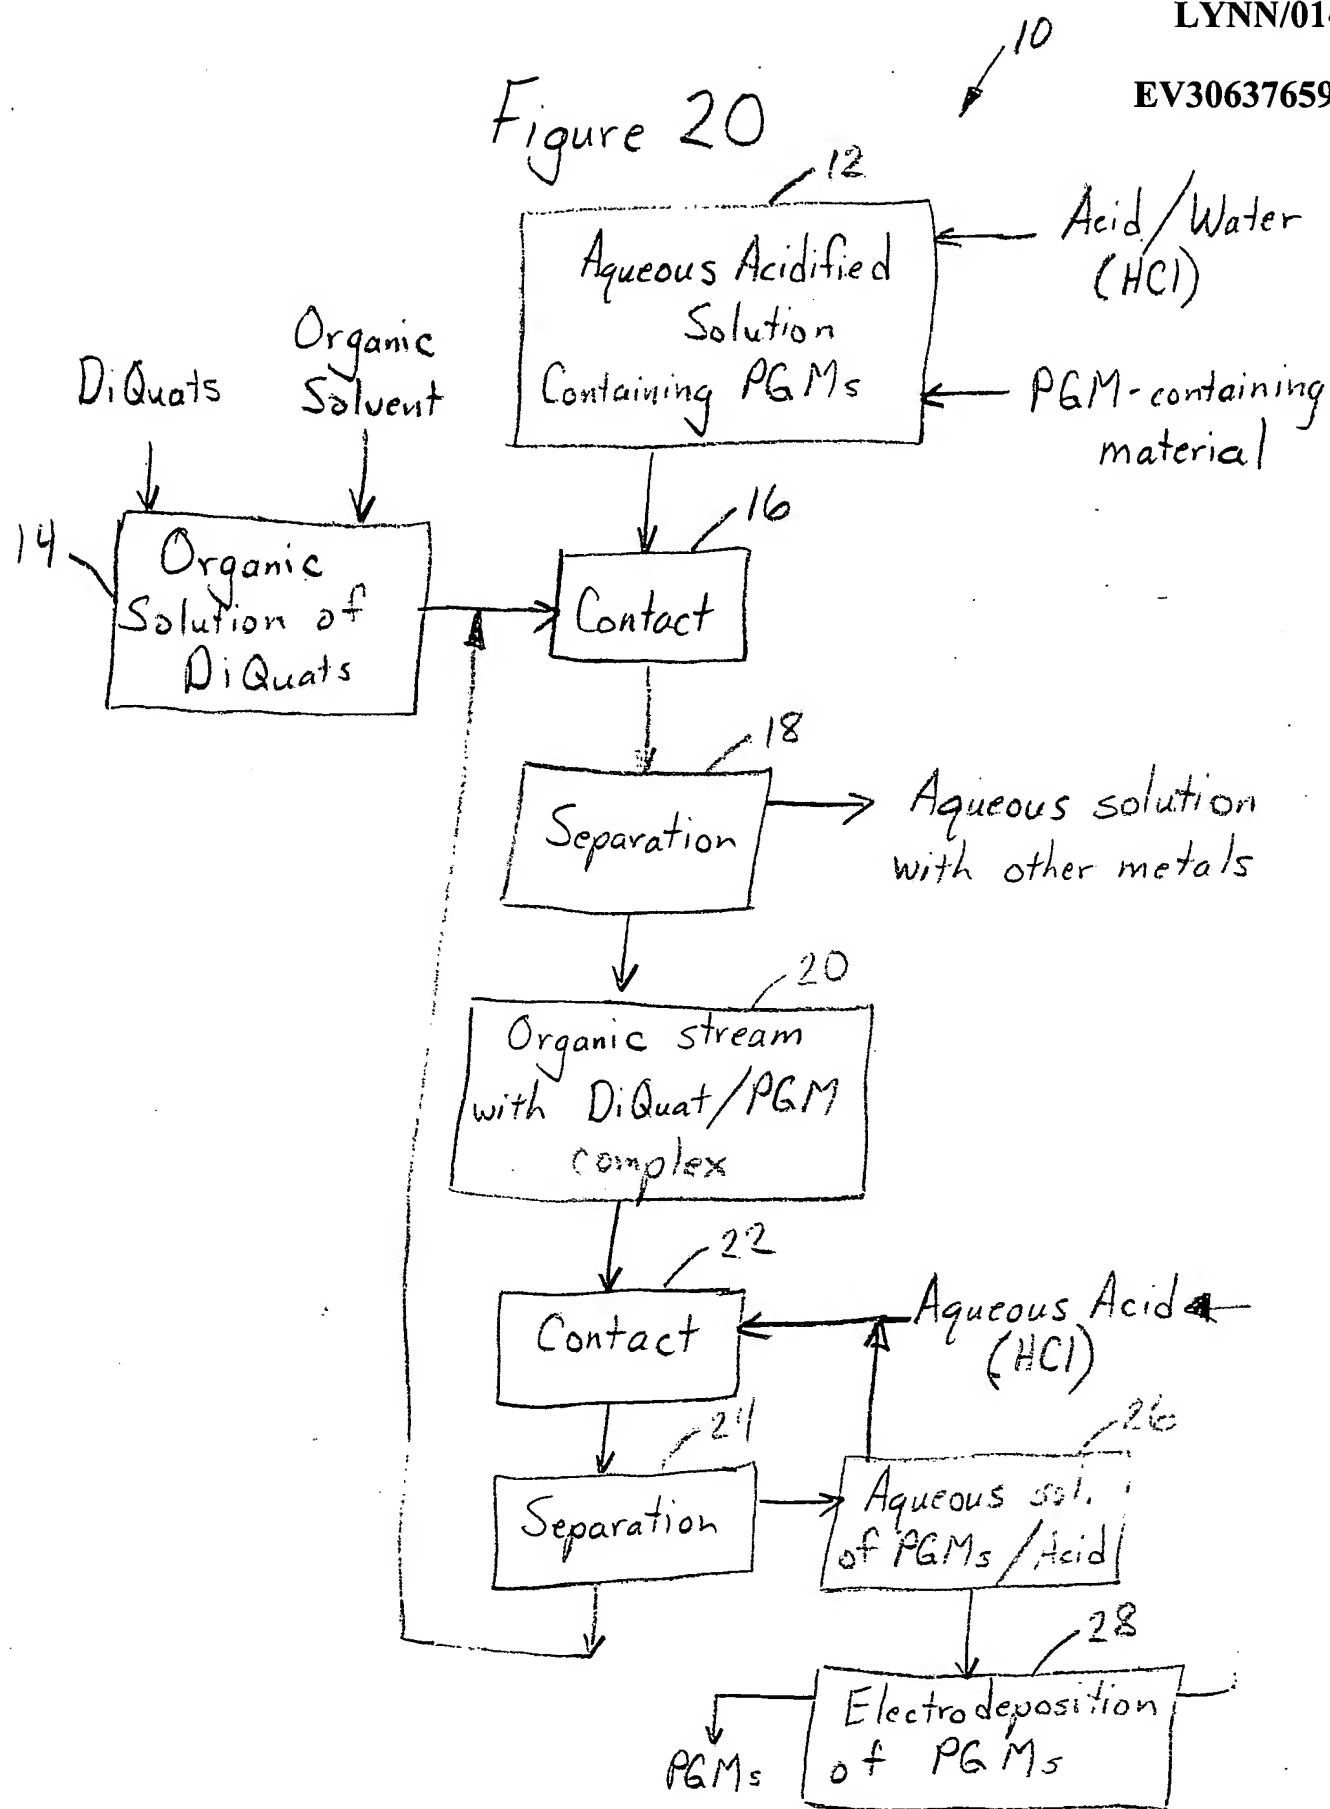 LYNN/01
10
EV30637659
Figure 20
12
Acid/Water
(HCl)
Aqueous Acidified
Solution
Containing PGMs
PGM-containing
material
DiQuats
Organic
Solvent
14
Organic
Solution of
DiQuats
16
Contact
18
Separation
Aqueous solution
with other metals
20
Organic stream
with DiQuat/PGM
complex
22
Contact
Aqueous Acid
(HCl)
24
Separation
26
Aqueous sol.
of PGMs/Acid
28
Electrodeposition
of PGMs
PGMs